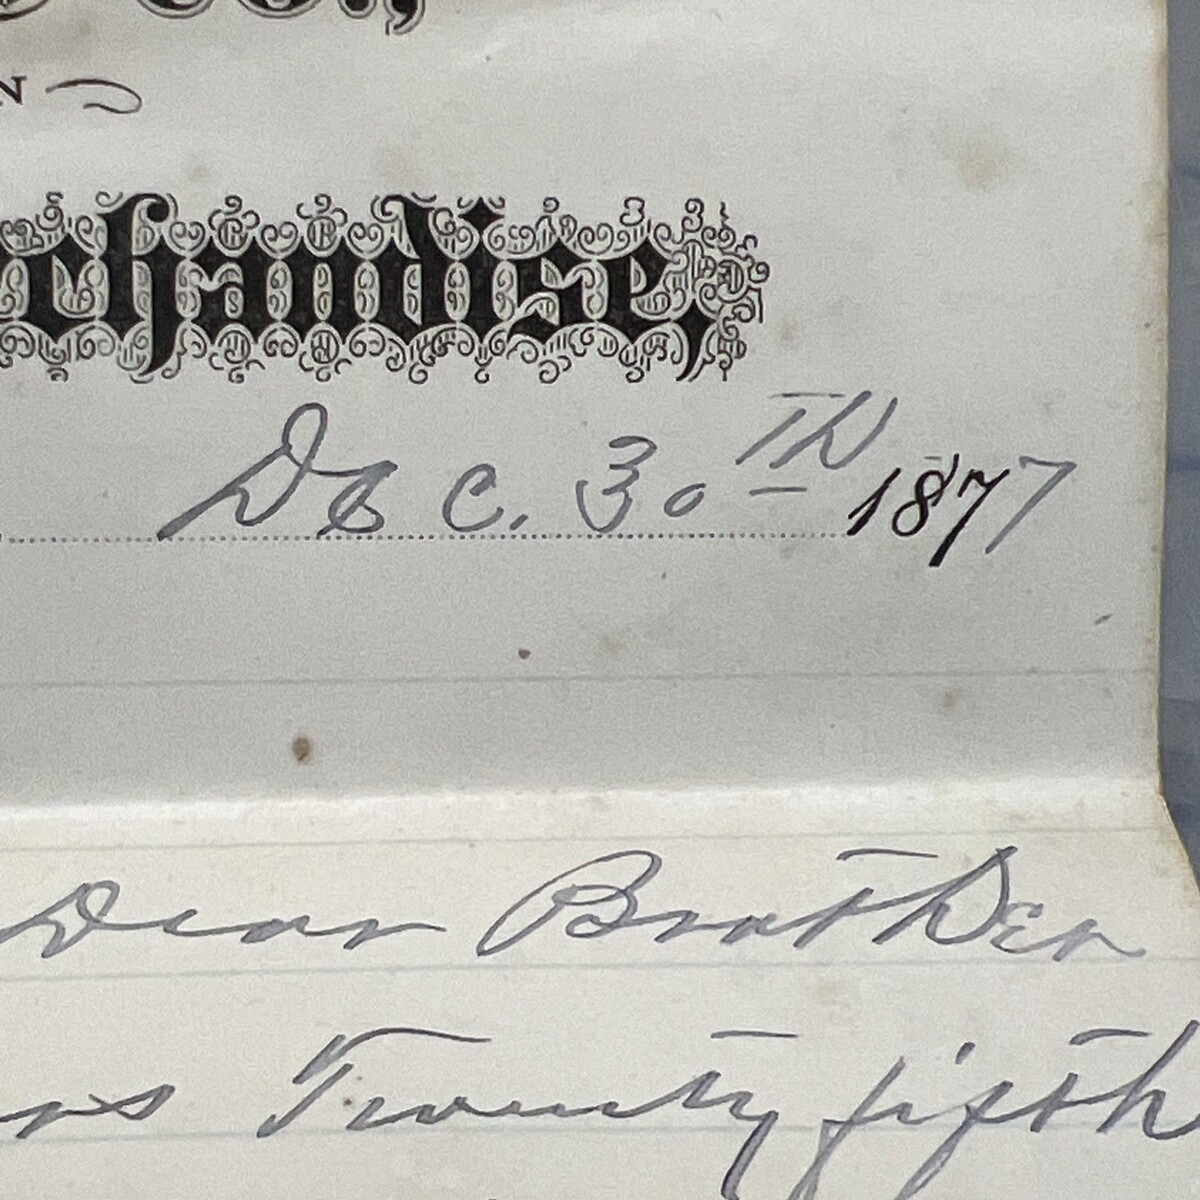 Co.,
N
chandise,
Dec. 30TH 1877
Dear Brother
Twenty fifth